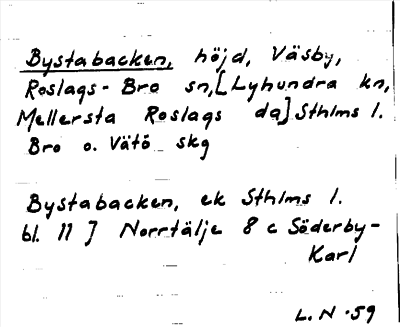 Bystabacken, höjd, Väsby,
Roslags-Bro sn, [Lyhundra kn,
Mellersta Roslags da] Sthlms l.
Bro o. Vätö skg
Bystabacken, ek Sthlms l.
bl. 11] Norrtälje 8 c Söderby-
Karl
L. N -59